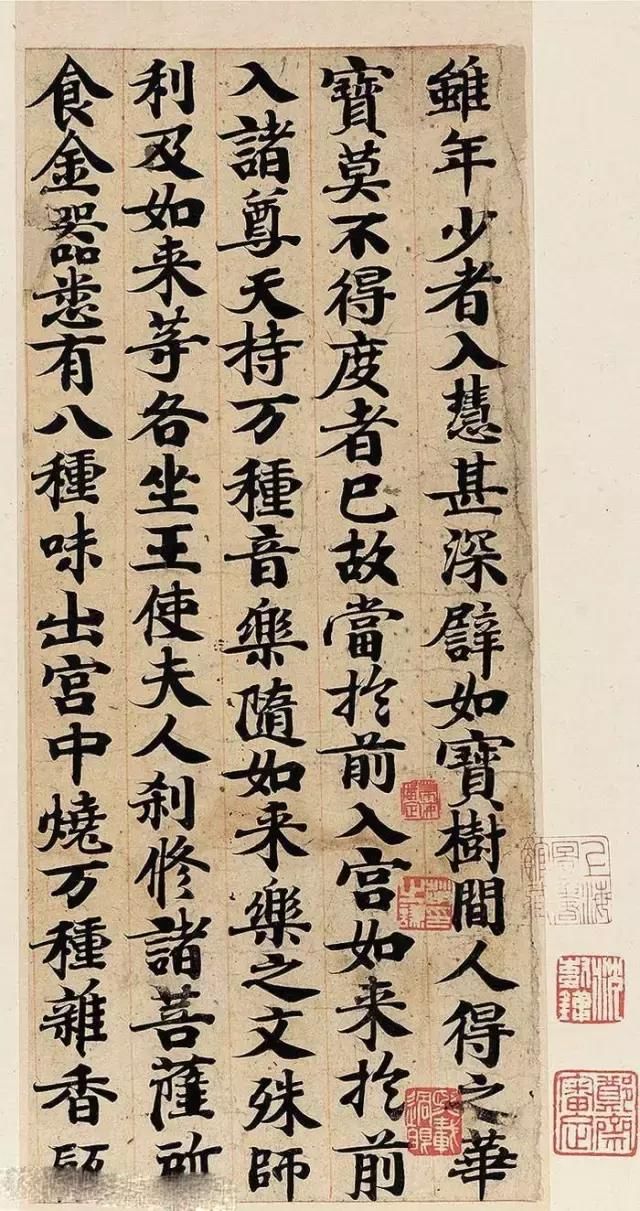 雖年少者入慧甚深譬如寶樹間人得之華
寶莫不得度者已故當扵前入宫如来扵前
入諸尊天持万種音樂随如来樂之文殊師
利及如来等各坐王使夫人刹修諸菩薩所
食金器悉有八種味出宫中燒万種雜香